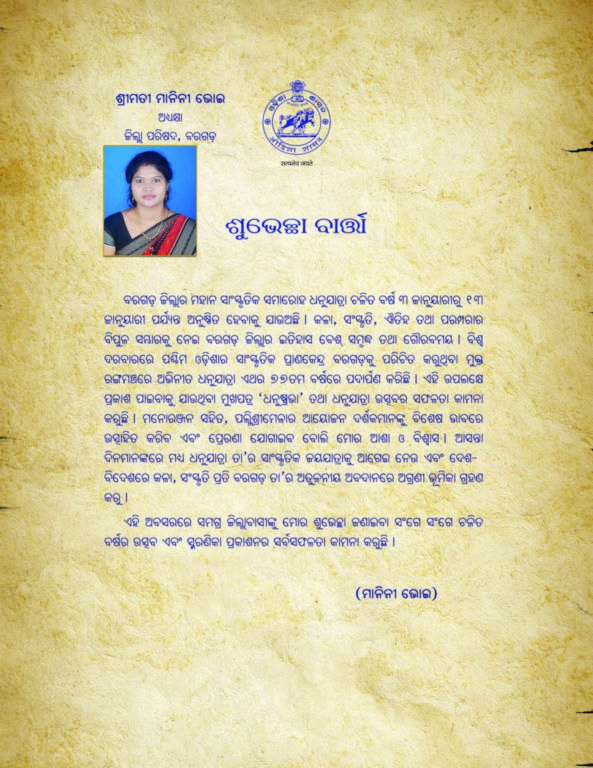 ଶ୍ରୀମତୀ ମାନିନୀ ଭୋଇ
ଅଧ୍ୟକ୍ଷା
ଜିଲ୍ଲା ପରିଷଦ, ବରଗଡ଼
ସତ୍ୟମେବ जयते
ଶୁଭେଚ୍ଛା ବାର୍ତ୍ତା
ବରଗଡ଼ ଜିଲ୍ଲାର ମହାନ ସାଂସ୍କୃତିକ ସମାରୋହ ଧନୁଯାତ୍ରା ଚଳିତ ବର୍ଷ ୩ ଜାନୁୟାରୀରୁ ୧୩
ଜାନୁୟାରୀ ପର୍ଯ୍ୟନ୍ତ ଅନୁଷ୍ଠିତ ହେବାକୁ ଯାଉଅଛି । କଳା, ସଂସ୍କୃତି, ଐତିହ ତଥା ପରମ୍ପରାର
ବିପୁଳ ସମ୍ଭାରକୁ ନେଇ ବରଗଡ଼ ଜିଲ୍ଲାର ଇତିହାସ ବେଶ୍ ସମୃଦ୍ଧ ତଥା ଗୌରବମୟ । ବିଶ୍ୱ
ଦରବାରରେ ପଶ୍ଚିମ ଓଡ଼ିଶାର ସାଂସ୍କୃତିକ ପ୍ରାଣକେନ୍ଦ୍ର ବରଗଡ଼କୁ ପରିଚିତ କରୁଥିବା ମୁକ୍ତ
ରଙ୍ଗମଞ୍ଚରେ ଅଭିନୀତ ଧନୁଯାତ୍ରା ଏଥର ୭୭ତମ ବର୍ଷରେ ପଦାର୍ପଣ କରିଛି । ଏହି ଉପଲକ୍ଷେ
ପ୍ରକାଶ ପାଇବାକୁ ଯାଉଥିବା ମୁଖପତ୍ର ‘ଧନୁଷ୍ପ୍ରଭା’ ତଥା ଧନୁଯାତ୍ରା ଉତ୍ସବର ସଫଳତା କାମନା
କରୁଛି । ମନୋରଞ୍ଜନ ସହିତ, ପଲ୍ଲିଶ୍ରୀମେଳାର ଆୟୋଜନ ଦର୍ଶକମାନଙ୍କୁ ବିଶେଷ ଭାବରେ
ଉତ୍ସାହିତ କରିବ ଏବଂ ପ୍ରେରଣା ଯୋଗାଇବ ବୋଲି ମୋର ଆଶା ଓ ବିଶ୍ୱାସ । ଆସନ୍ତା
ଦିନମାନଙ୍କରେ ମଧ୍ୟ ଧନୁଯାତ୍ରା ତା’ର ସାଂସ୍କୃତିକ ଜୟଯାତ୍ରାକୁ ଆଗେଇ ନେଉ ଏବଂ ଦେଶ-
ବିଦେଶରେ କଳା, ସଂସ୍କୃତି ପ୍ରତି ବରଗଡ଼ ତା’ର ଅତୁଳନୀୟ ଅବଦାନରେ ଅଗ୍ରଣୀ ଭୂମିକା ଗ୍ରହଣ
କରୁ ।
ଏହି ଅବସରରେ ସମଗ୍ର ଜିଲ୍ଲାବାସୀଙ୍କୁ ମୋର ଶୁଭେଚ୍ଛା ଜଣାଇବା ସଂଗେ ସଂଗେ ଚଳିତ
ବର୍ଷର ଉତ୍ସବ ଏବଂ ସ୍ମରଣିକା ପ୍ରକାଶନର ସର୍ବସଫଳତା କାମନା କରୁଛି ।
(ମାନିନୀ ଭୋଇ)